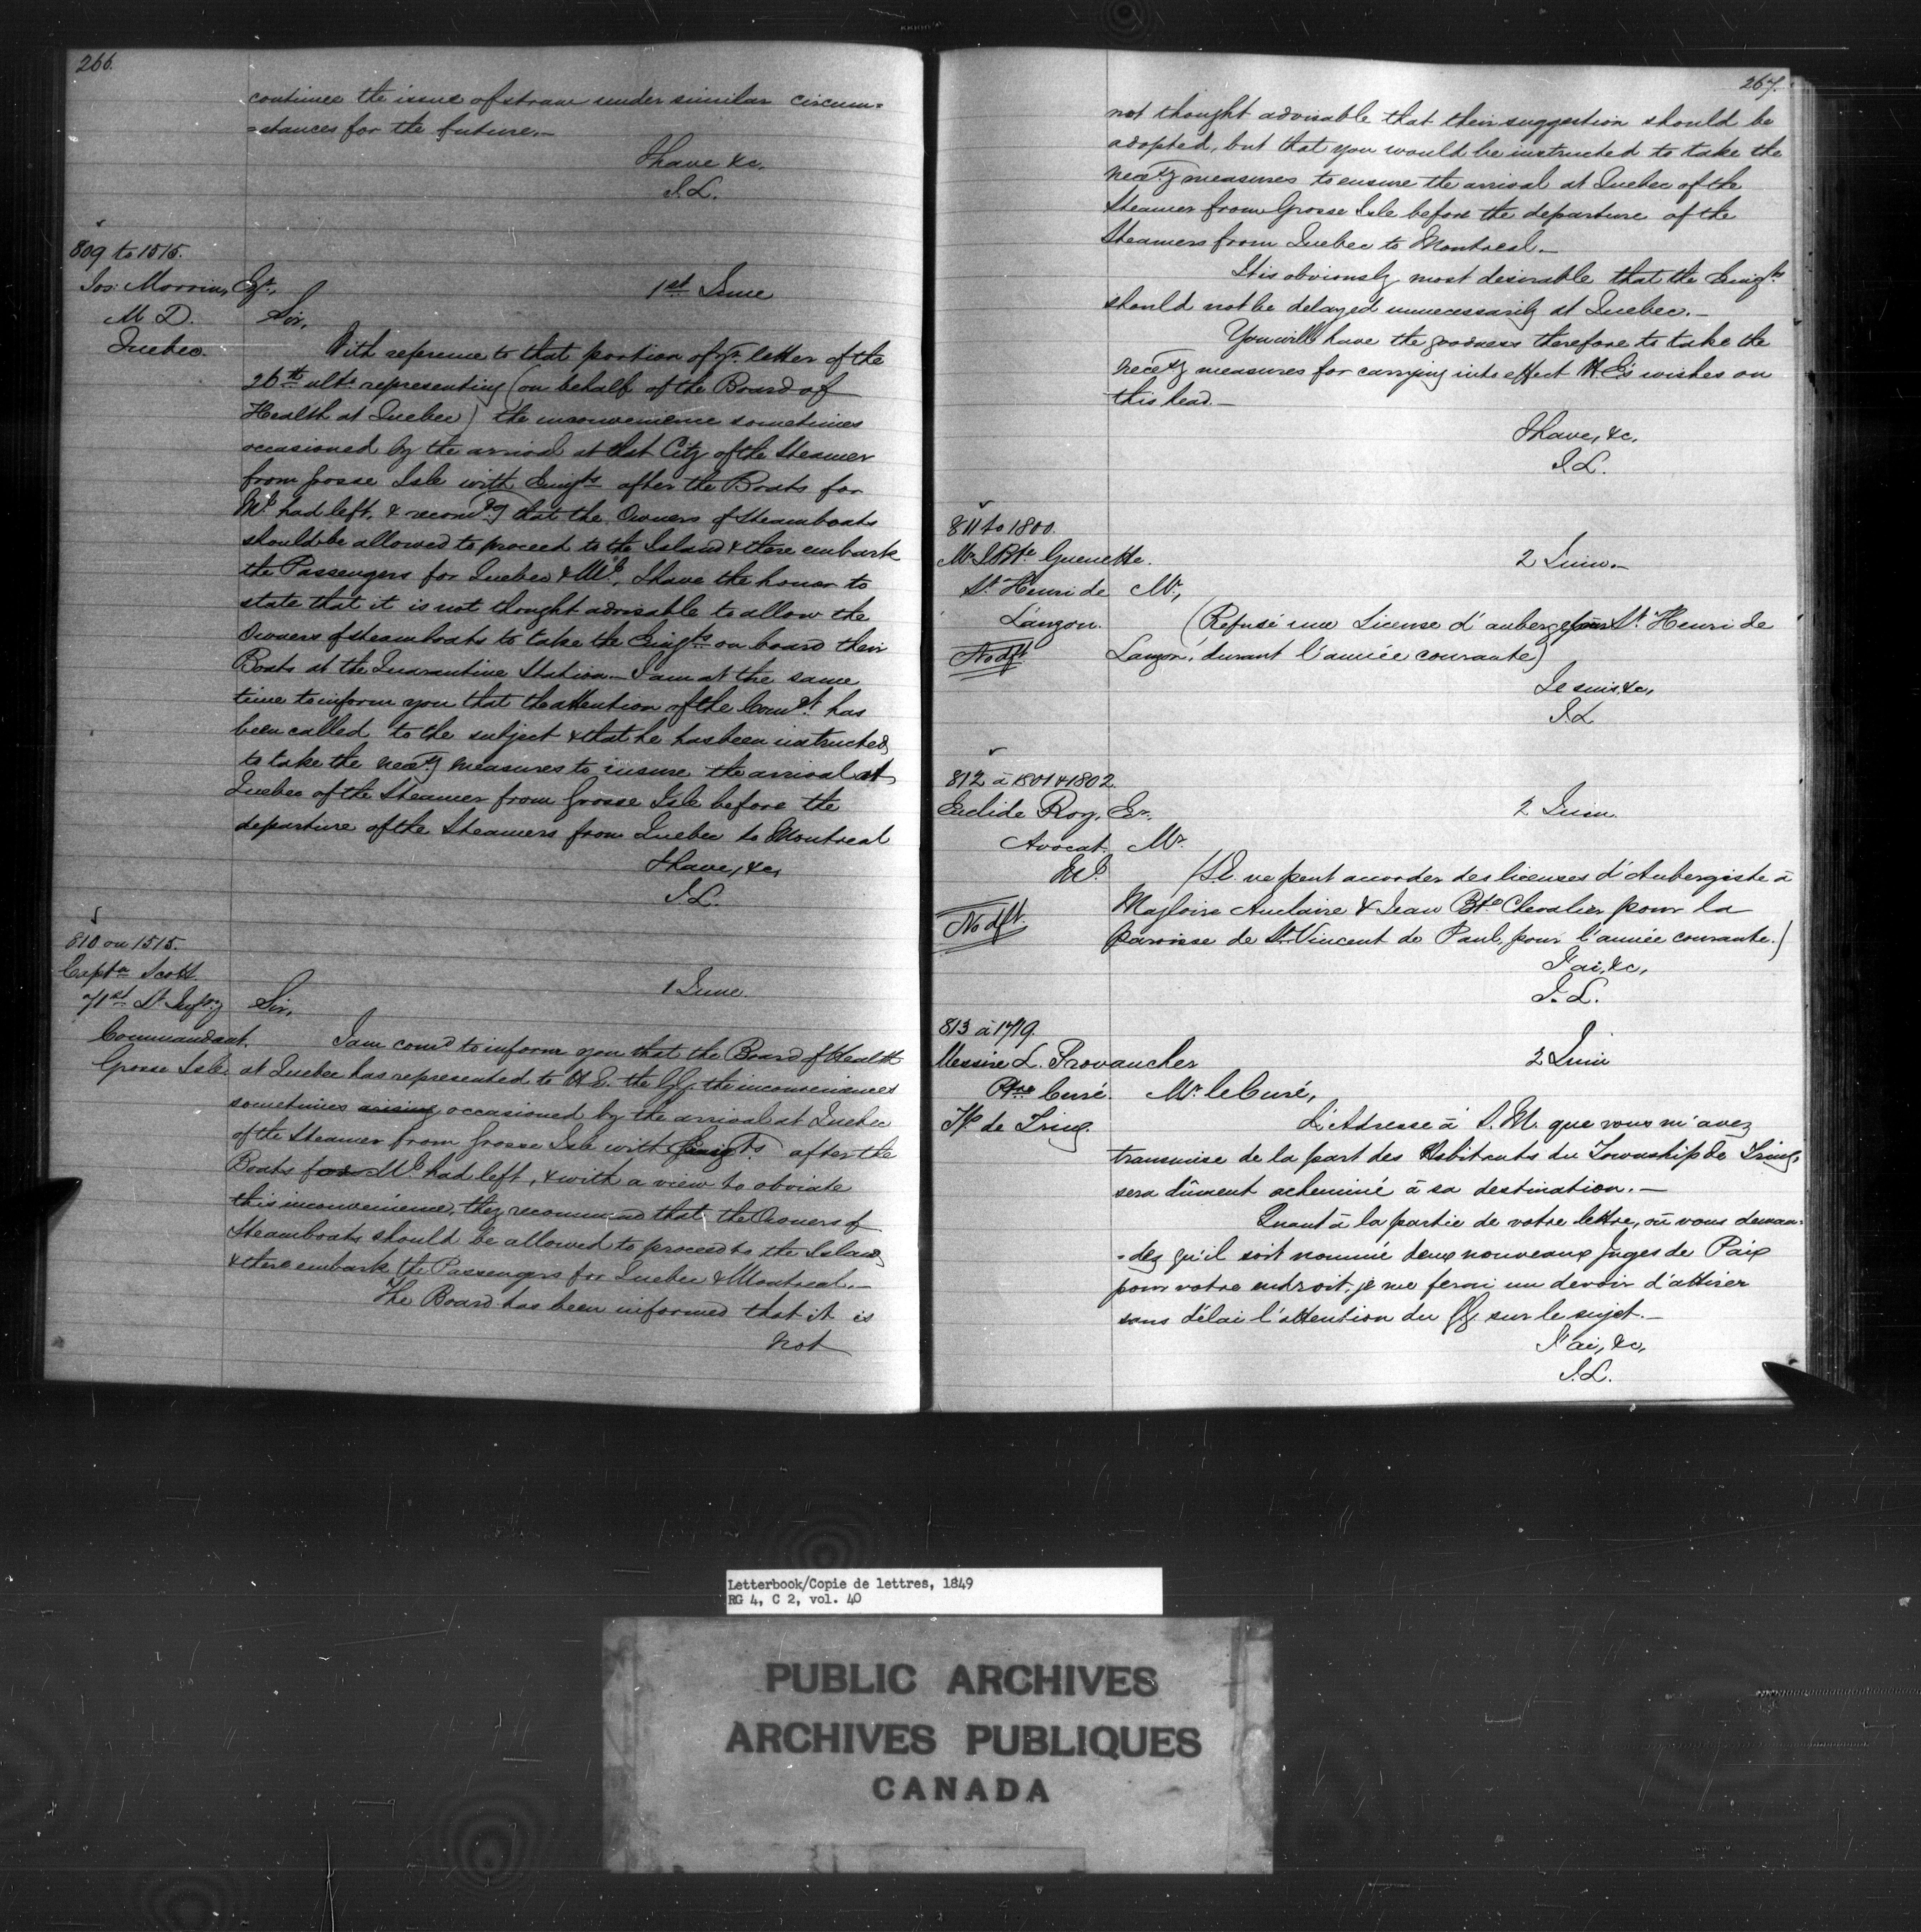 266.
continue the issue of straw under similar circum=
=stances for the future.—
I have &c.
J.L.
809 to 1515.
Jos: Morrin, Esqr.,
1st June
M D.
Sir,
Quebec.
With reference to that portion of yr. letter of the
26th ulto. representing (on behalf of the Board of
Health at Quebec) the inconvenience sometimes
occasioned by the arrival at that City of the Steamer
from Grosse Isle with Emigts after the Boats for
Ml. had left, & recomdg that the Owners of Steamboats
should be allowed to proceed to the Island & there embark
the Passengers for Quebec & Ml., I have the honor to
state that it is not thought advisable to allow the
Owners of steamboats to take the Emigts on board their
Boats at the Quarantine Station.— I am at the same
time to inform you that the attention of the Comdt. has
been called to the subject & that he has been instructed
to take the necety measures to insure the arrival at
Quebec of the Steamer from Grosse Isle before the
departure of the Steamers from Quebec to Montreal
I have, &c,
J.L.
810 on 1515.
Captn Scott
1 June.
71st Lt Infry
Sir,
Commandant.
Grosse Isle.
I am comd to inform you that the Board of Health
at Quebec has represented to H.E. the GG. the inconveniences
sometimes arising occasioned by the arrival at Quebec
of the Steamer from Grosse Isle with Emigts. after the
Boats for Ml. had left, & with a view to obviate
this inconvenience, they recommend that the Owners of
Steamboats should be allowed to proceed to the Island
& there embark the Passengers for Quebec & Montreal.—
The Board has been informed that it is
not
267.
not thought advisable that their suggestion should be
adopted, but that you would be instructed to take the
necety measures to ensure the arrival at Quebec of the
Steamer from Grosse Isle before the departure of the
Steamers from Quebec to Montreal.—
It is obviously most desirable that the Emigts
should not be delayed unnecessarily at Quebec.—
You will have the goodness therefore to take the
necety measures for carrying into effect H E's wishes on
this head.—
I have, &c.
J.L.
811 to 1800.
Mr J Bte Guenette.
2 Juin.—
St Henri de
Mr.,
Lauzon.
No dft
(Refusé une License d'auberge pour St Henri de
Lauzon, durant l'année courante)
Je suis &c,
J.L
812 à 1801 & 1802.
Euclide Roy, Er.
2 Juin.
Avocat,
Mr.
Ml.
No dft.
(S.E. ne peut accorder des licenses d'Aubergiste à
Magloire Auclaire & Jean Bte Chevalier pour la
paroisse de St Vincent de Paul, pour l'année courante.)
J'ai, &c,
J. L.
813 à 1719.
Messire L. Provancher
2 Juin
Ptre Curé.
Mr. le Curé,
Tp de Tring.
L'Adresse à S.M. que vous m'avez
transmise de la part des Habitants du Township de Tring,
sera dûment acheminé à sa destination.—
Quant à la partie de votre lettre, où vous deman=
=dez qu'il soit nommé deux nouveaux Juges de Paix
pour votre endroit, je me ferai un devoir d'attirer
sans délai l'attention du GG sur le sujet.—
J'ai, &c,
J.L.
Letterbook/Copie de lettres, 1849
RG 4, C 2, vol. 40
PUBLIC ARCHIVES
ARCHIVES PUBLIQUES
CANADA